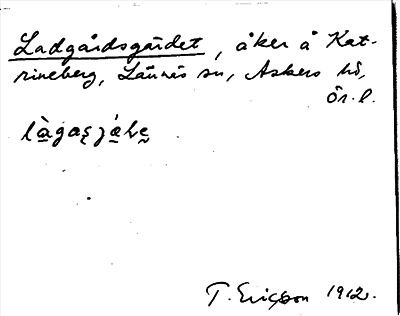 Ladgårdsgärdet, åker å Kat-
rineberg, Lännäs sn, Askers hd,
Ör. l.
T. Ericsson 1912.